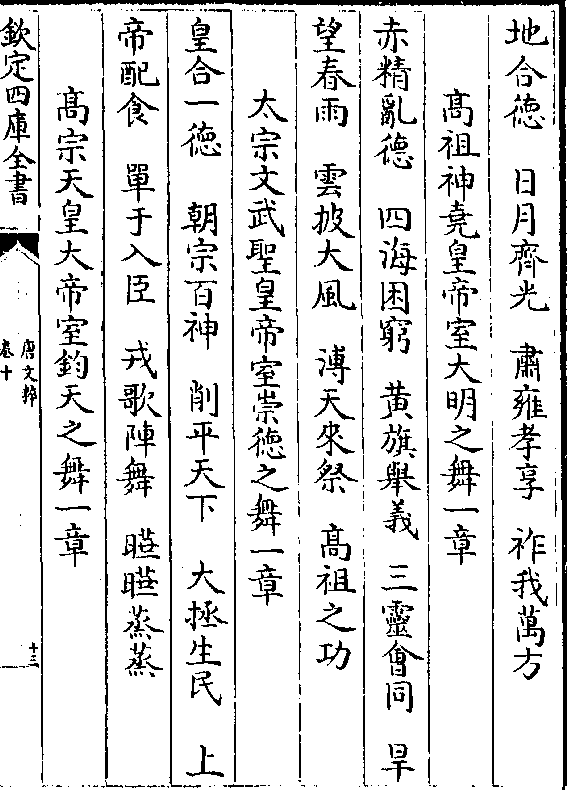 地合徳 日月齊光 肅雍孝享 祚我萬方
高祖神堯皇帝室大明之舞一章
赤精亂徳 四海困窮 黄旗舉義 三靈會同 旱
望春雨 雲披大風 溥天來祭 髙祖之功
太宗文武聖皇帝室崇徳之舞一章
皇合一徳 朝宗百神 削平天下 大拯生民 上
帝配食 單于入臣 戎歌陣舞 曣曣蒸蒸
髙宗天皇大帝室鈞天之舞一章
欽定四庫全書
唐文粹
卷十
十三